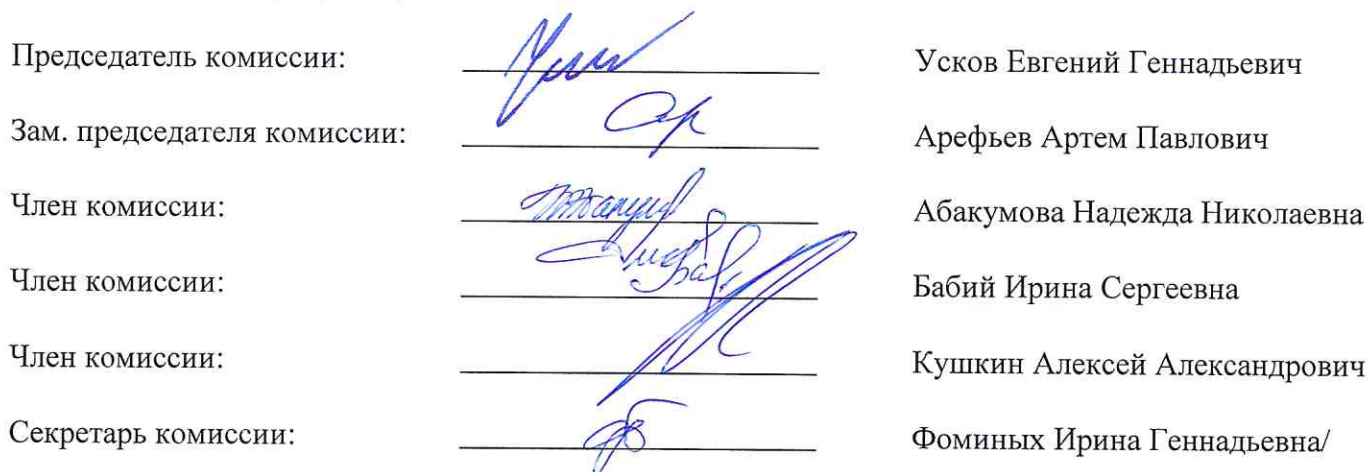 Председатель комиссии: Усков Евгений Геннадьевич
Зам. председателя комиссии: Арефьев Артем Павлович
Член комиссии: Абакумова Надежда Николаевна
Член комиссии: Бабий Ирина Сергеевна
Член комиссии: Кушкин Алексей Александрович
Секретарь комиссии: Фоминых Ирина Геннадьевна/